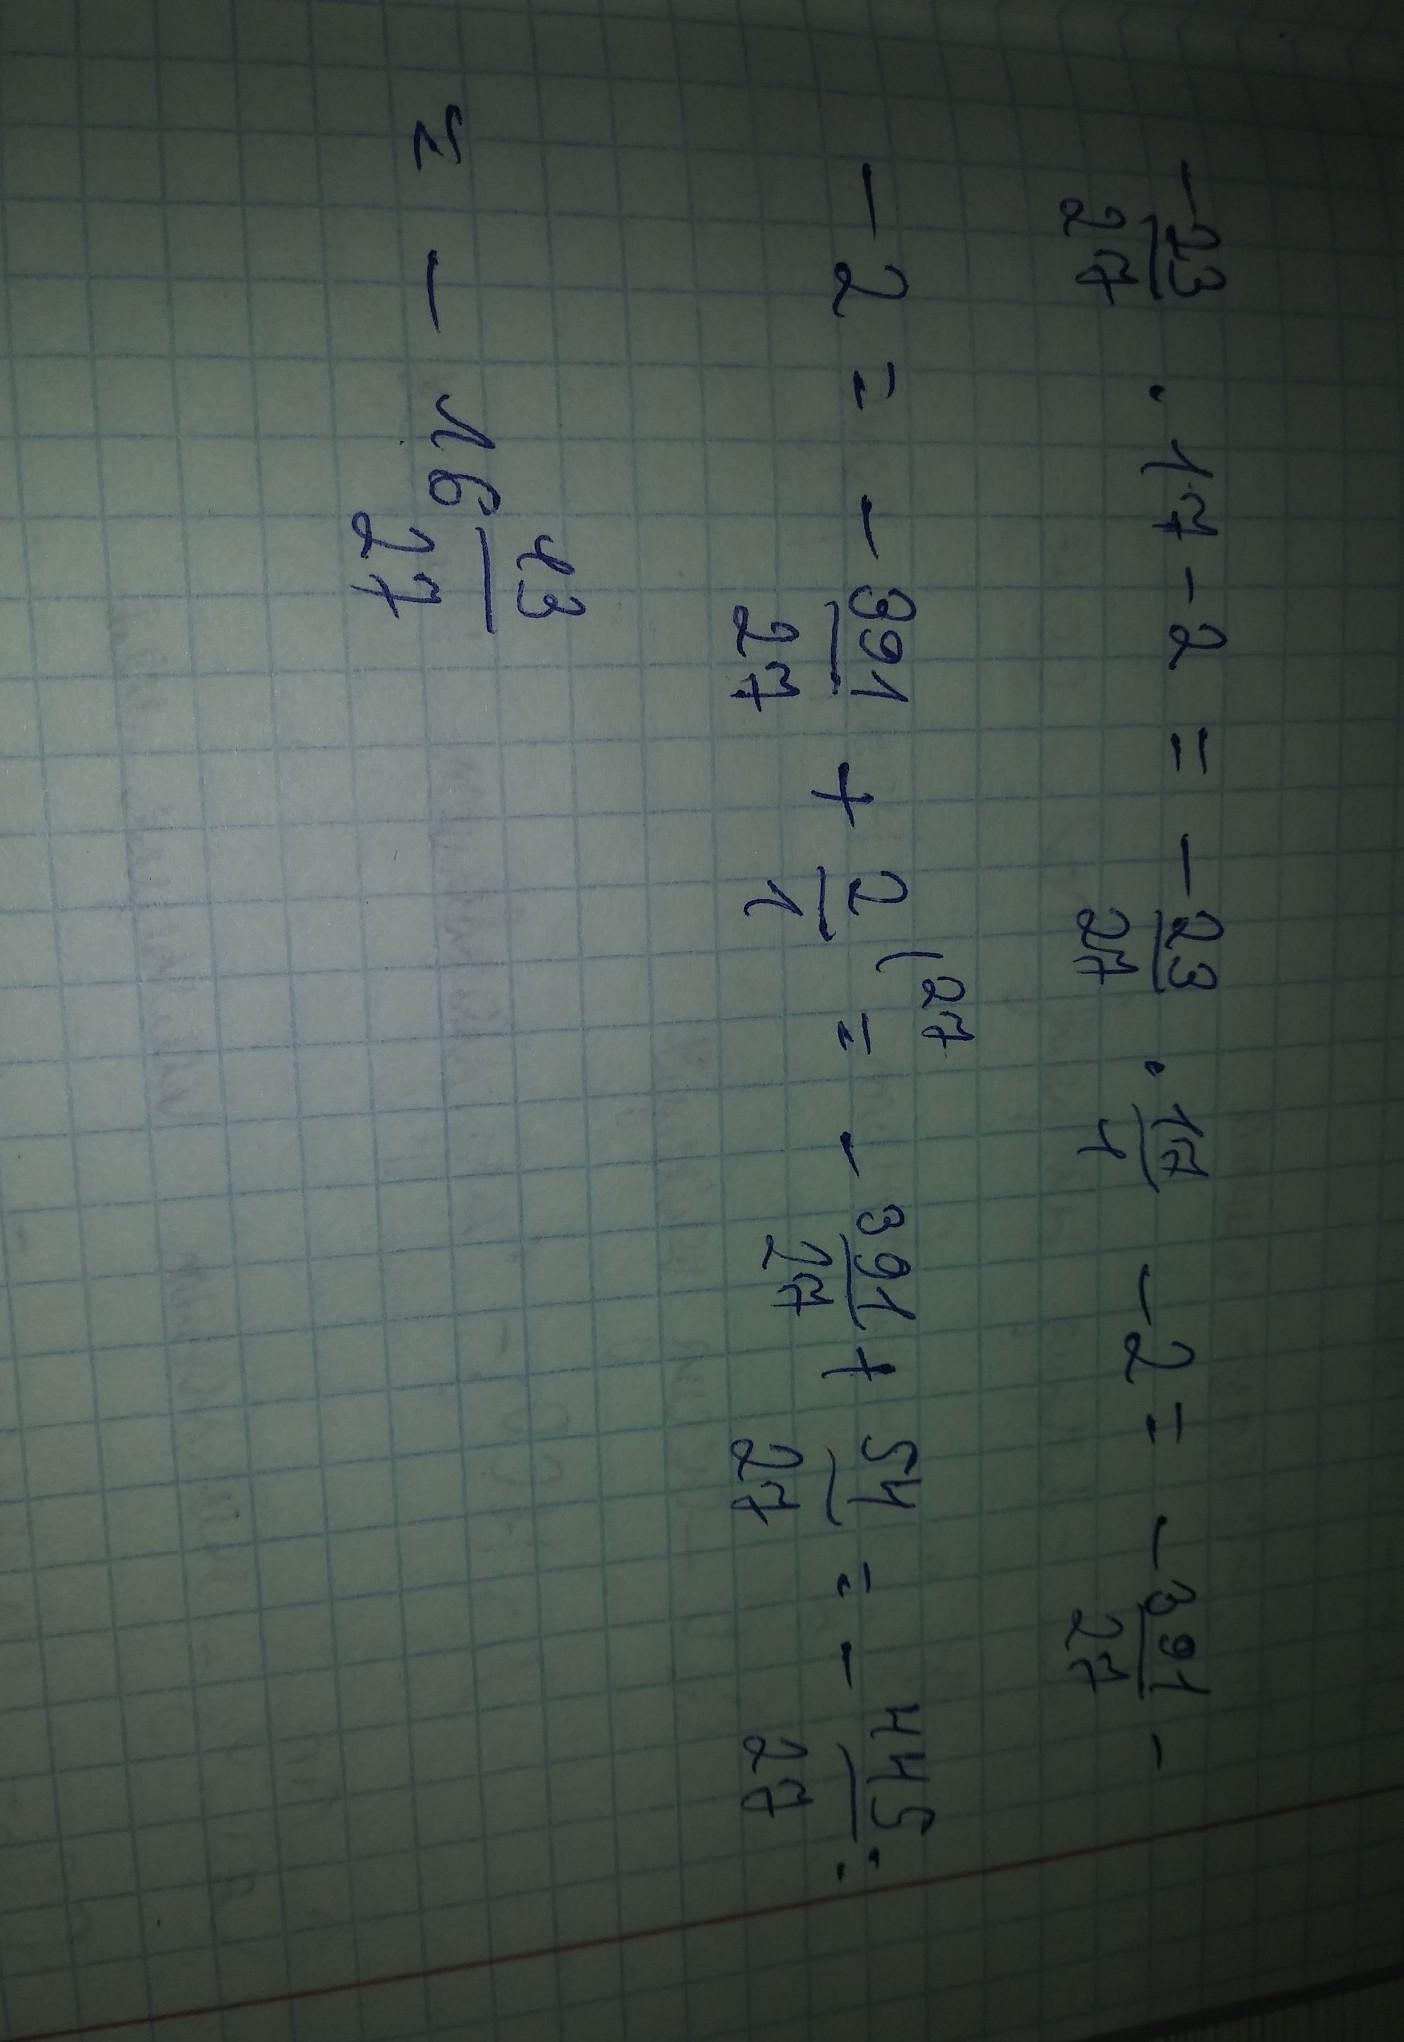 -23/27 · 17 - 2 = -23/27 · 17/1 - 2 = -391/27 -
- 2 = - 391/27 + 2/1 (27 = - 391/27 + 54/27 = - 445/27 :
= - 16 13/27